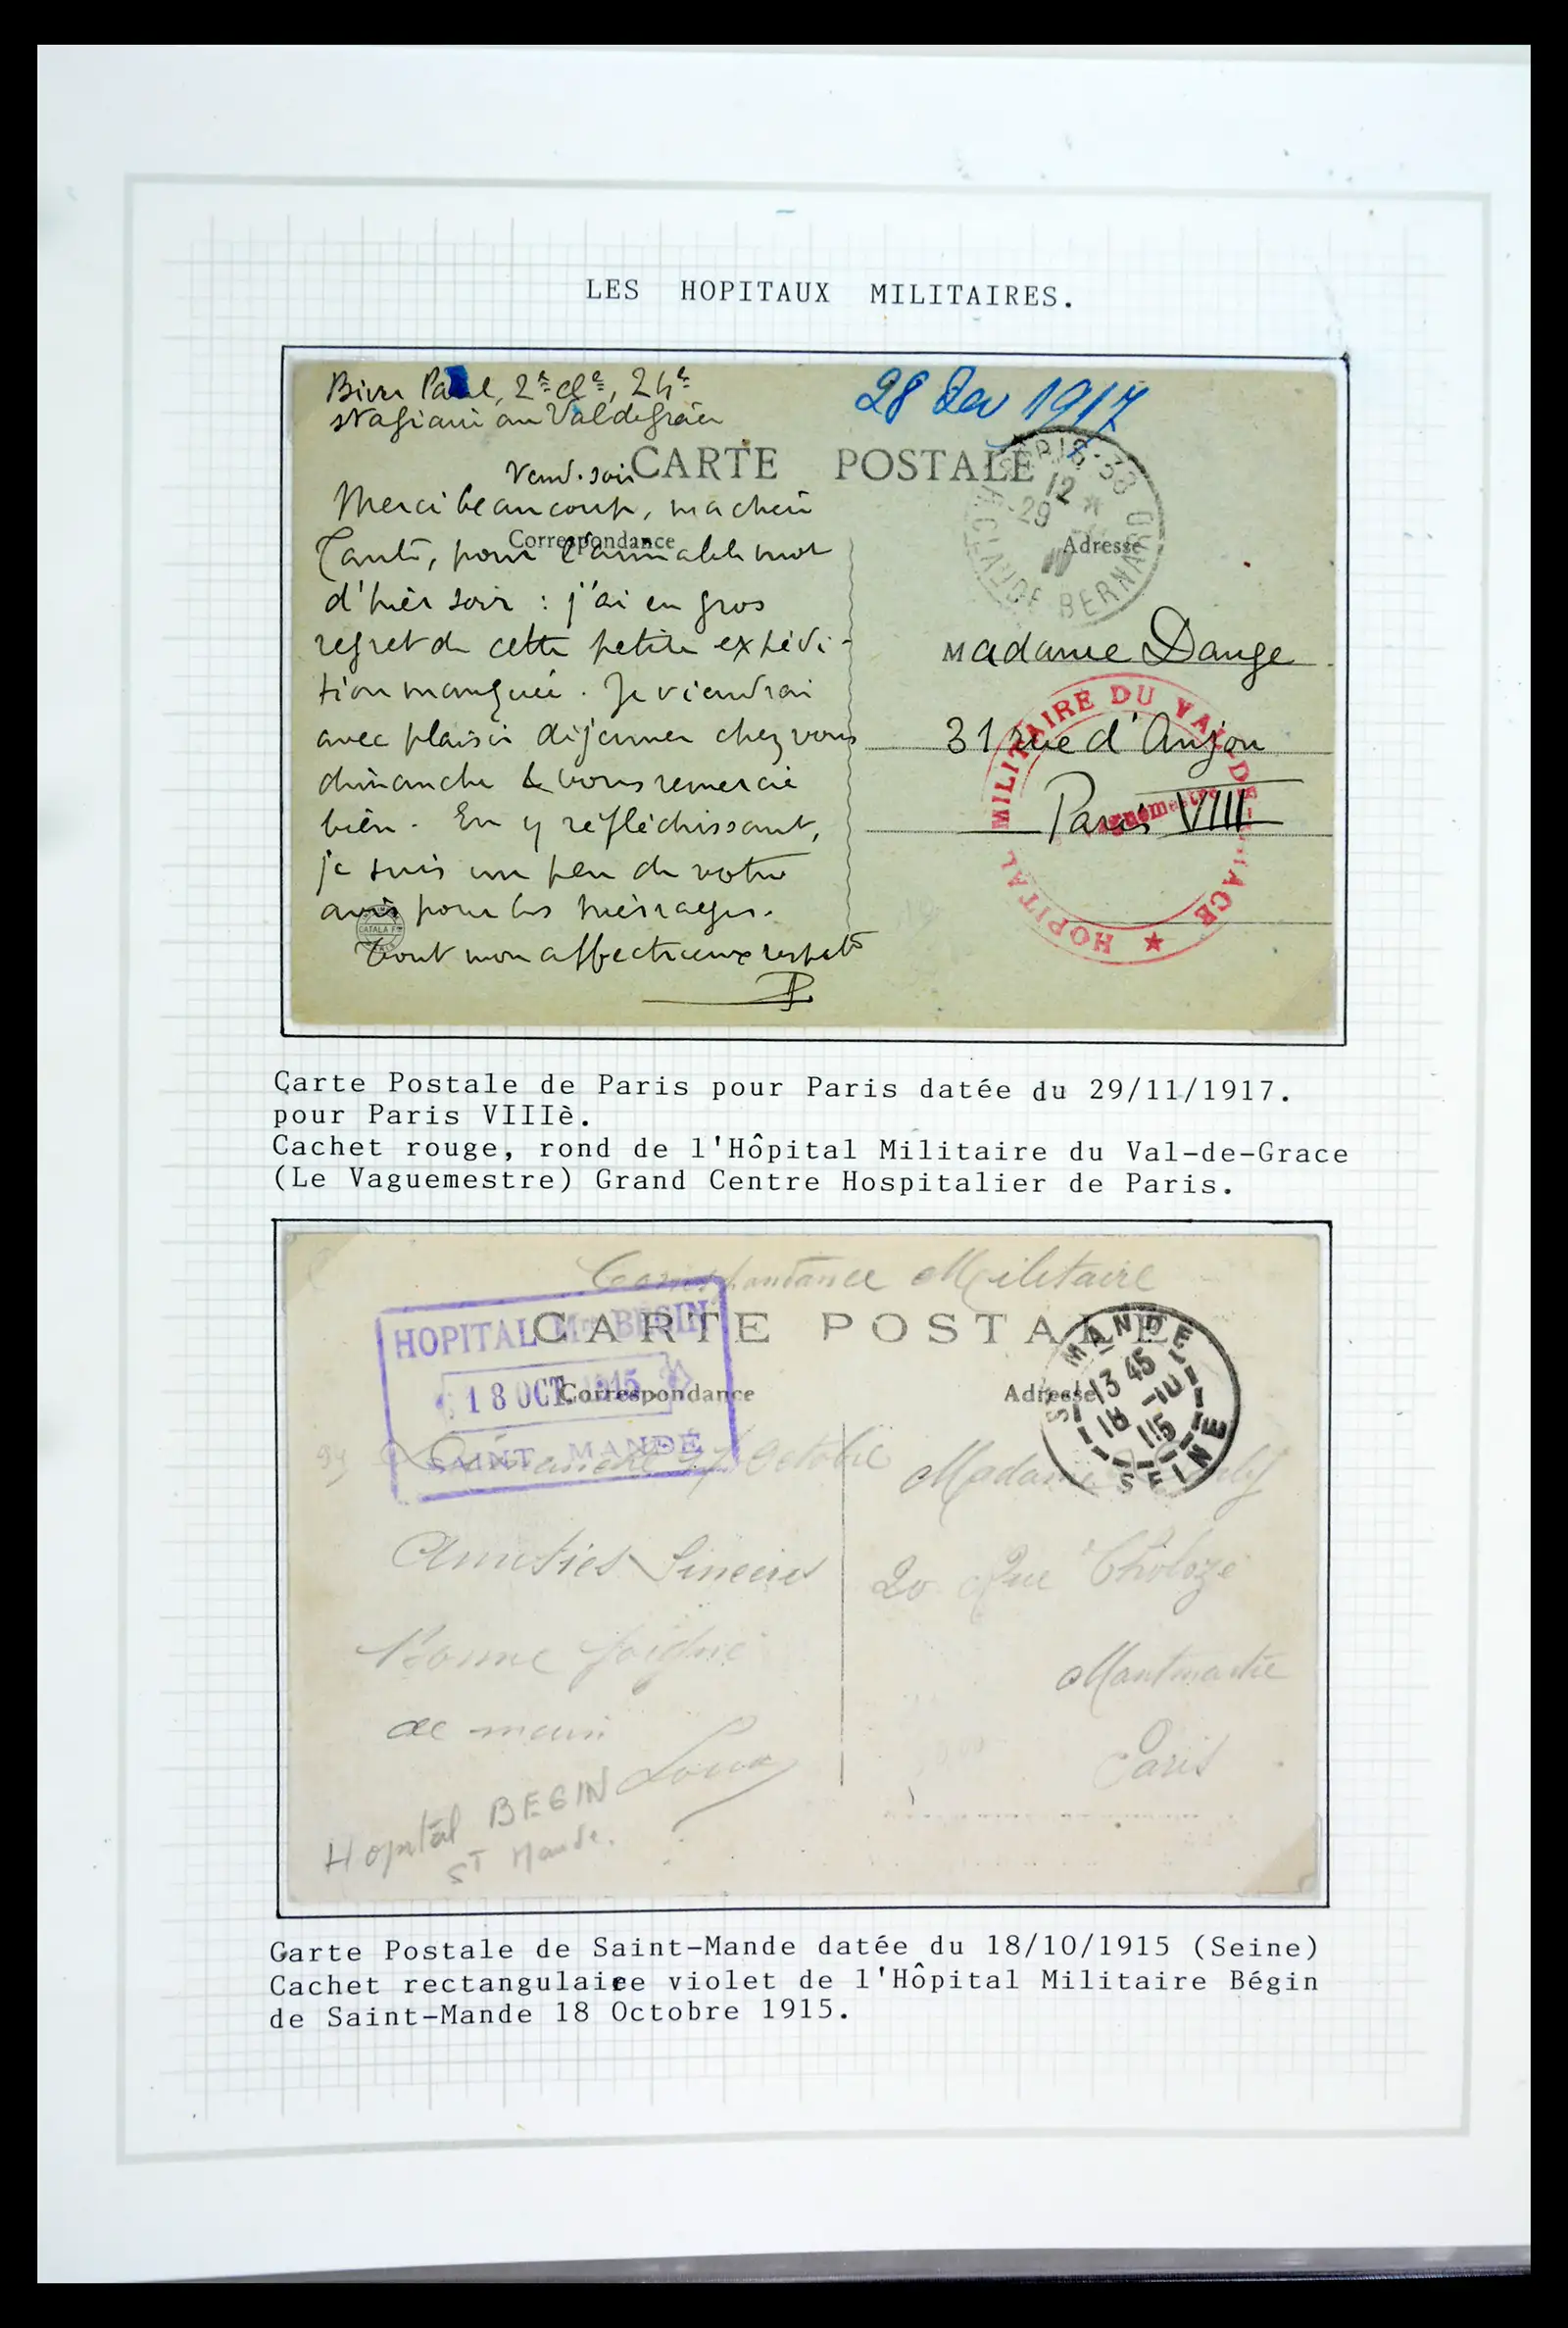 LES HOPITAUX MILITAIRES.
2e cle, 24e
stagiaire au Val de grâce
28 1917
CARTE POSTALE
Vend. soir
Merci beaucoup, ma chère
Correspondance
Tante, pour l'aimable mot
d'hier soir : j'ai eu gros
regret de cette petite expédi-
tion manquée. Je viendrai
avec plaisir déjeuner chez vous
dimanche & vous remercie
bien. En y réfléchissant,
je suis un peu de votre
avis pour les
Tout mon affectueux respect
CATALA
PARIS-38
12
29
CLAUDE BERNARD
Adresse
Madame Dange
31 rue d'Anjou
Paris VIII
HOPITAL MILITAIRE DU VAL-DE-GRACE
Vaguemestre
Carte Postale de Paris pour Paris datée du 29/11/1917.
pour Paris VIIIè.
Cachet rouge, rond de l'Hôpital Militaire du Val-de-Grace
(Le Vaguemestre) Grand Centre Hospitalier de Paris.
Correspondance Militaire
CARTE POSTALE
HOPITAL Mre BEGIN
18 OCT. 1915
SAINT MANDÉ
Correspondance
Adresse
ST MANDE
13 45
18 -10
15
SEINE
17 Octobre
Madame
Amitiés Sincères
20 Rue Tholozé
Bonne poignée
Montmartre
de main
Paris
Louis
Hopital BEGIN
ST Mande.
Carte Postale de Saint-Mande datée du 18/10/1915 (Seine)
Cachet rectangulaire violet de l'Hôpital Militaire Bégin
de Saint-Mande 18 Octobre 1915.